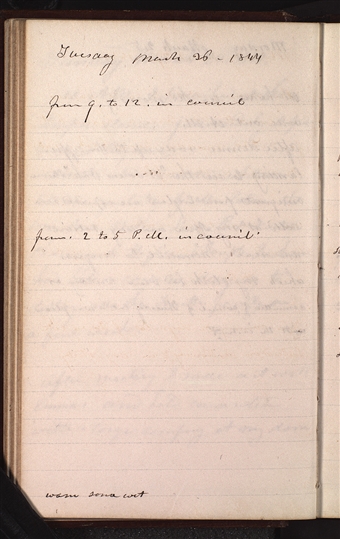 Tuesday March 26 - 1844
from 9. to 12. in council
from. 2 to 5 P.M. in council.
warm some wet